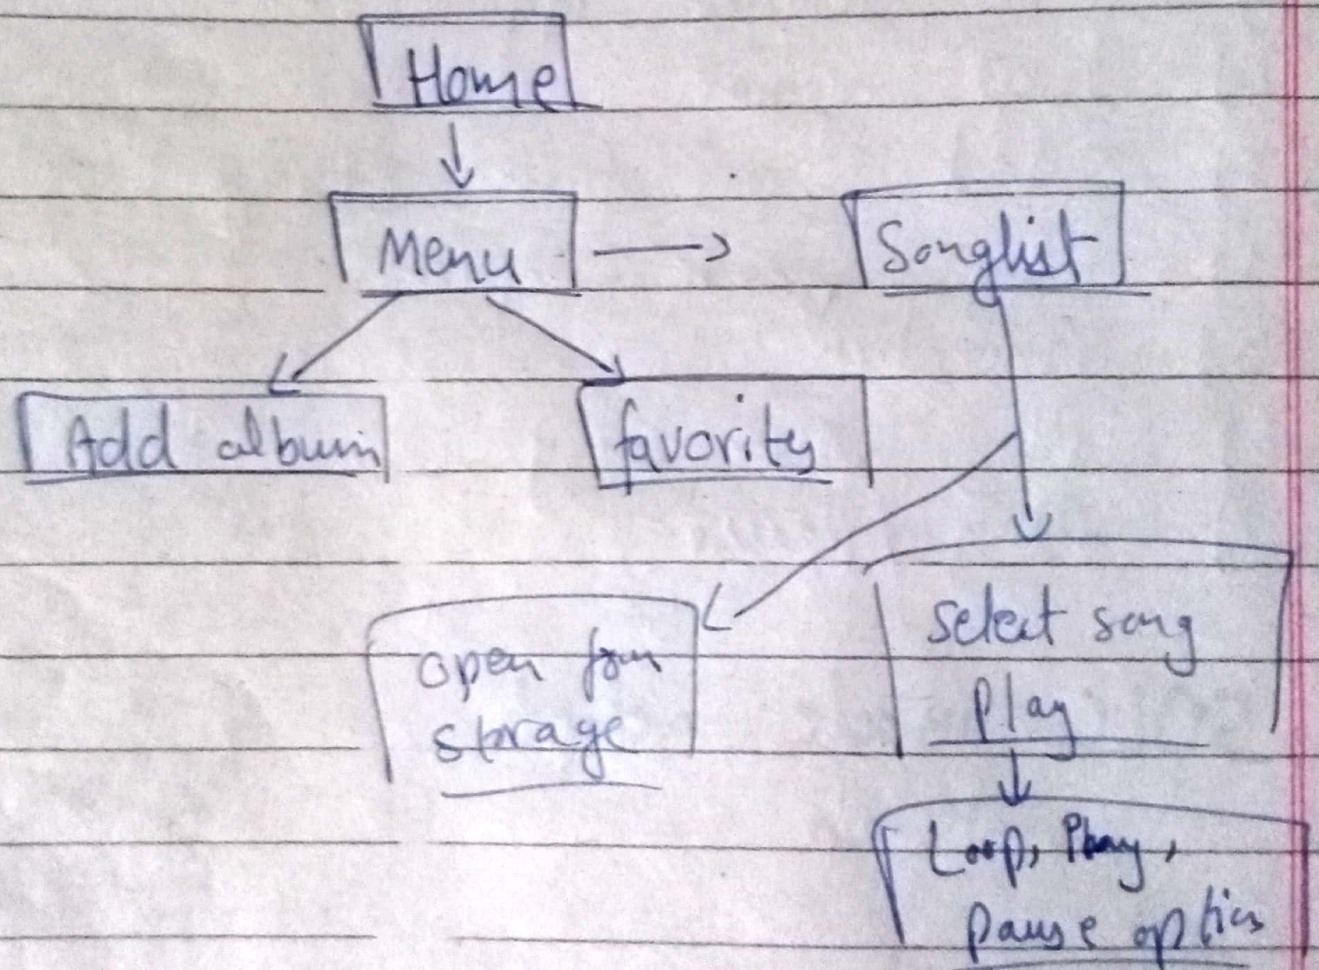 Home
Menu
Songlist
Add album
favority
open from
storage
select song
play
Loop, Play,
Pause option